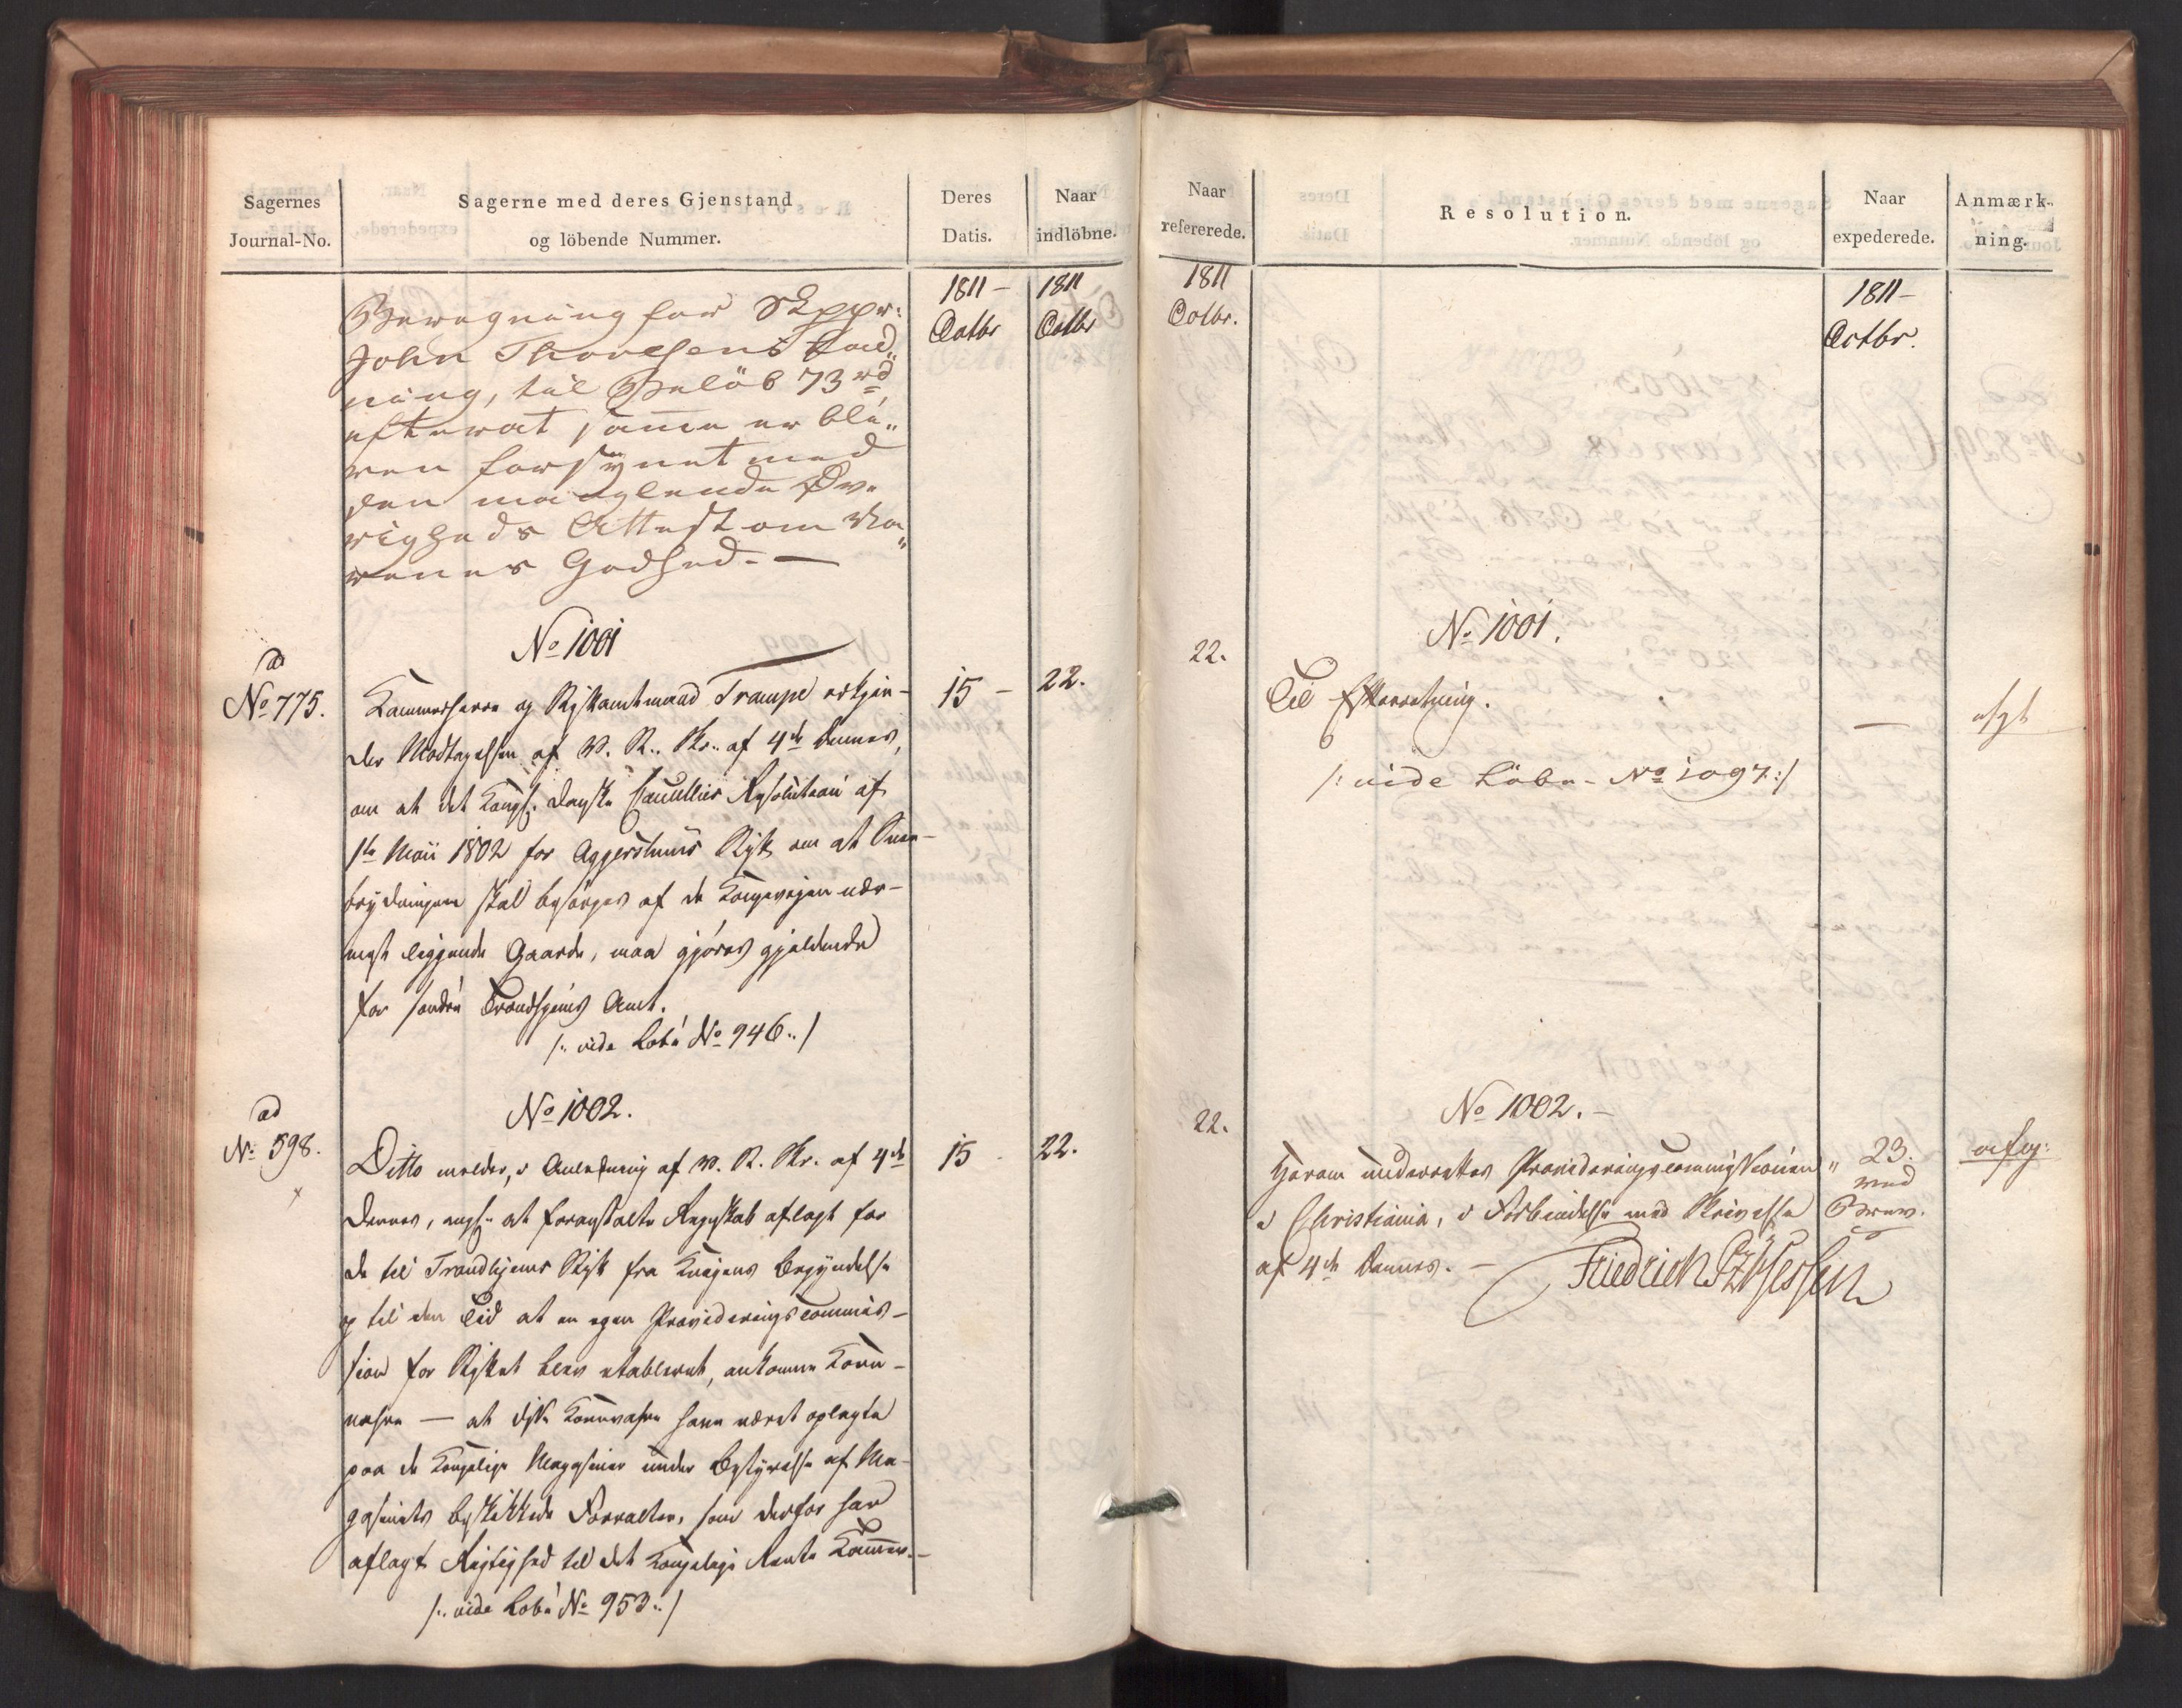 Sagernes
Journal-No.
Sagerne med deres Gjenstand
og löbende Nummer.
Deres
Datis.
Naar
indlöbne.
1811 -
Octbr
1811
Octbr
Beregning for Skppr:
John Thoresens Lad„
ning, til Belöb 73 rd
efterat samme er ble„
ven forsynet med
den manglende Öv„
righeds Attest om Va„
renes Godhed. —
No 1001
ad
No 775.
Kammerherre og Stiftamtmand Trampe erkjen-
der Modtagelsen af V. R. Skr. af 4de dennes,
om at det Kongl. danske Cancellies Resolution af
1ste Maii 1802 for Aggershuus Stift om at Snee-
brydningen skal besörges af de Kongeveien nær-
mest liggende Gaarde, maa gjöres gjeldende
for söndre Trondhjems Amt.
/: vide Lobe No 946 :/
15 -
22.
No 1002.
ad
No 598.
Ditto melder, i Anledning af V. R. Skr. af 4de
dennes, angl. at foranstalte Regnskab aflagt for
de til Trondhjems Stift fra Krigens Begyndelse
og til den Tid at en egen Provideringscommis-
sion for Stiftet blev etableret, ankomne Korn-
vahre — at disse Kornvahre have været oplagte
paa de Kongelige Magasiner under Bestyrelse af Ma-
gasinets beskikkede Forvalter, som derfor har
aflagt Rigtighed til det Kongelige Rente Kammer. -
/: vide Lobe No 953 :/
15 -
22.
Naar
refererede.
Resolution.
Naar
expederede.
Anmærk-
ning.
1811
Octbr.
1811 -
Octbr.
22.
No 1001.
Til Efterretning.
—
/: vide Löbe - No 1097 :/
22.
No 1002. -
Herom underrettes Provideringscommissionen
i Christiania, i Forbindelse med Skrivelse
af 4de dennes. -
Friedrich PzHessen
„ 23.
med
Brev.